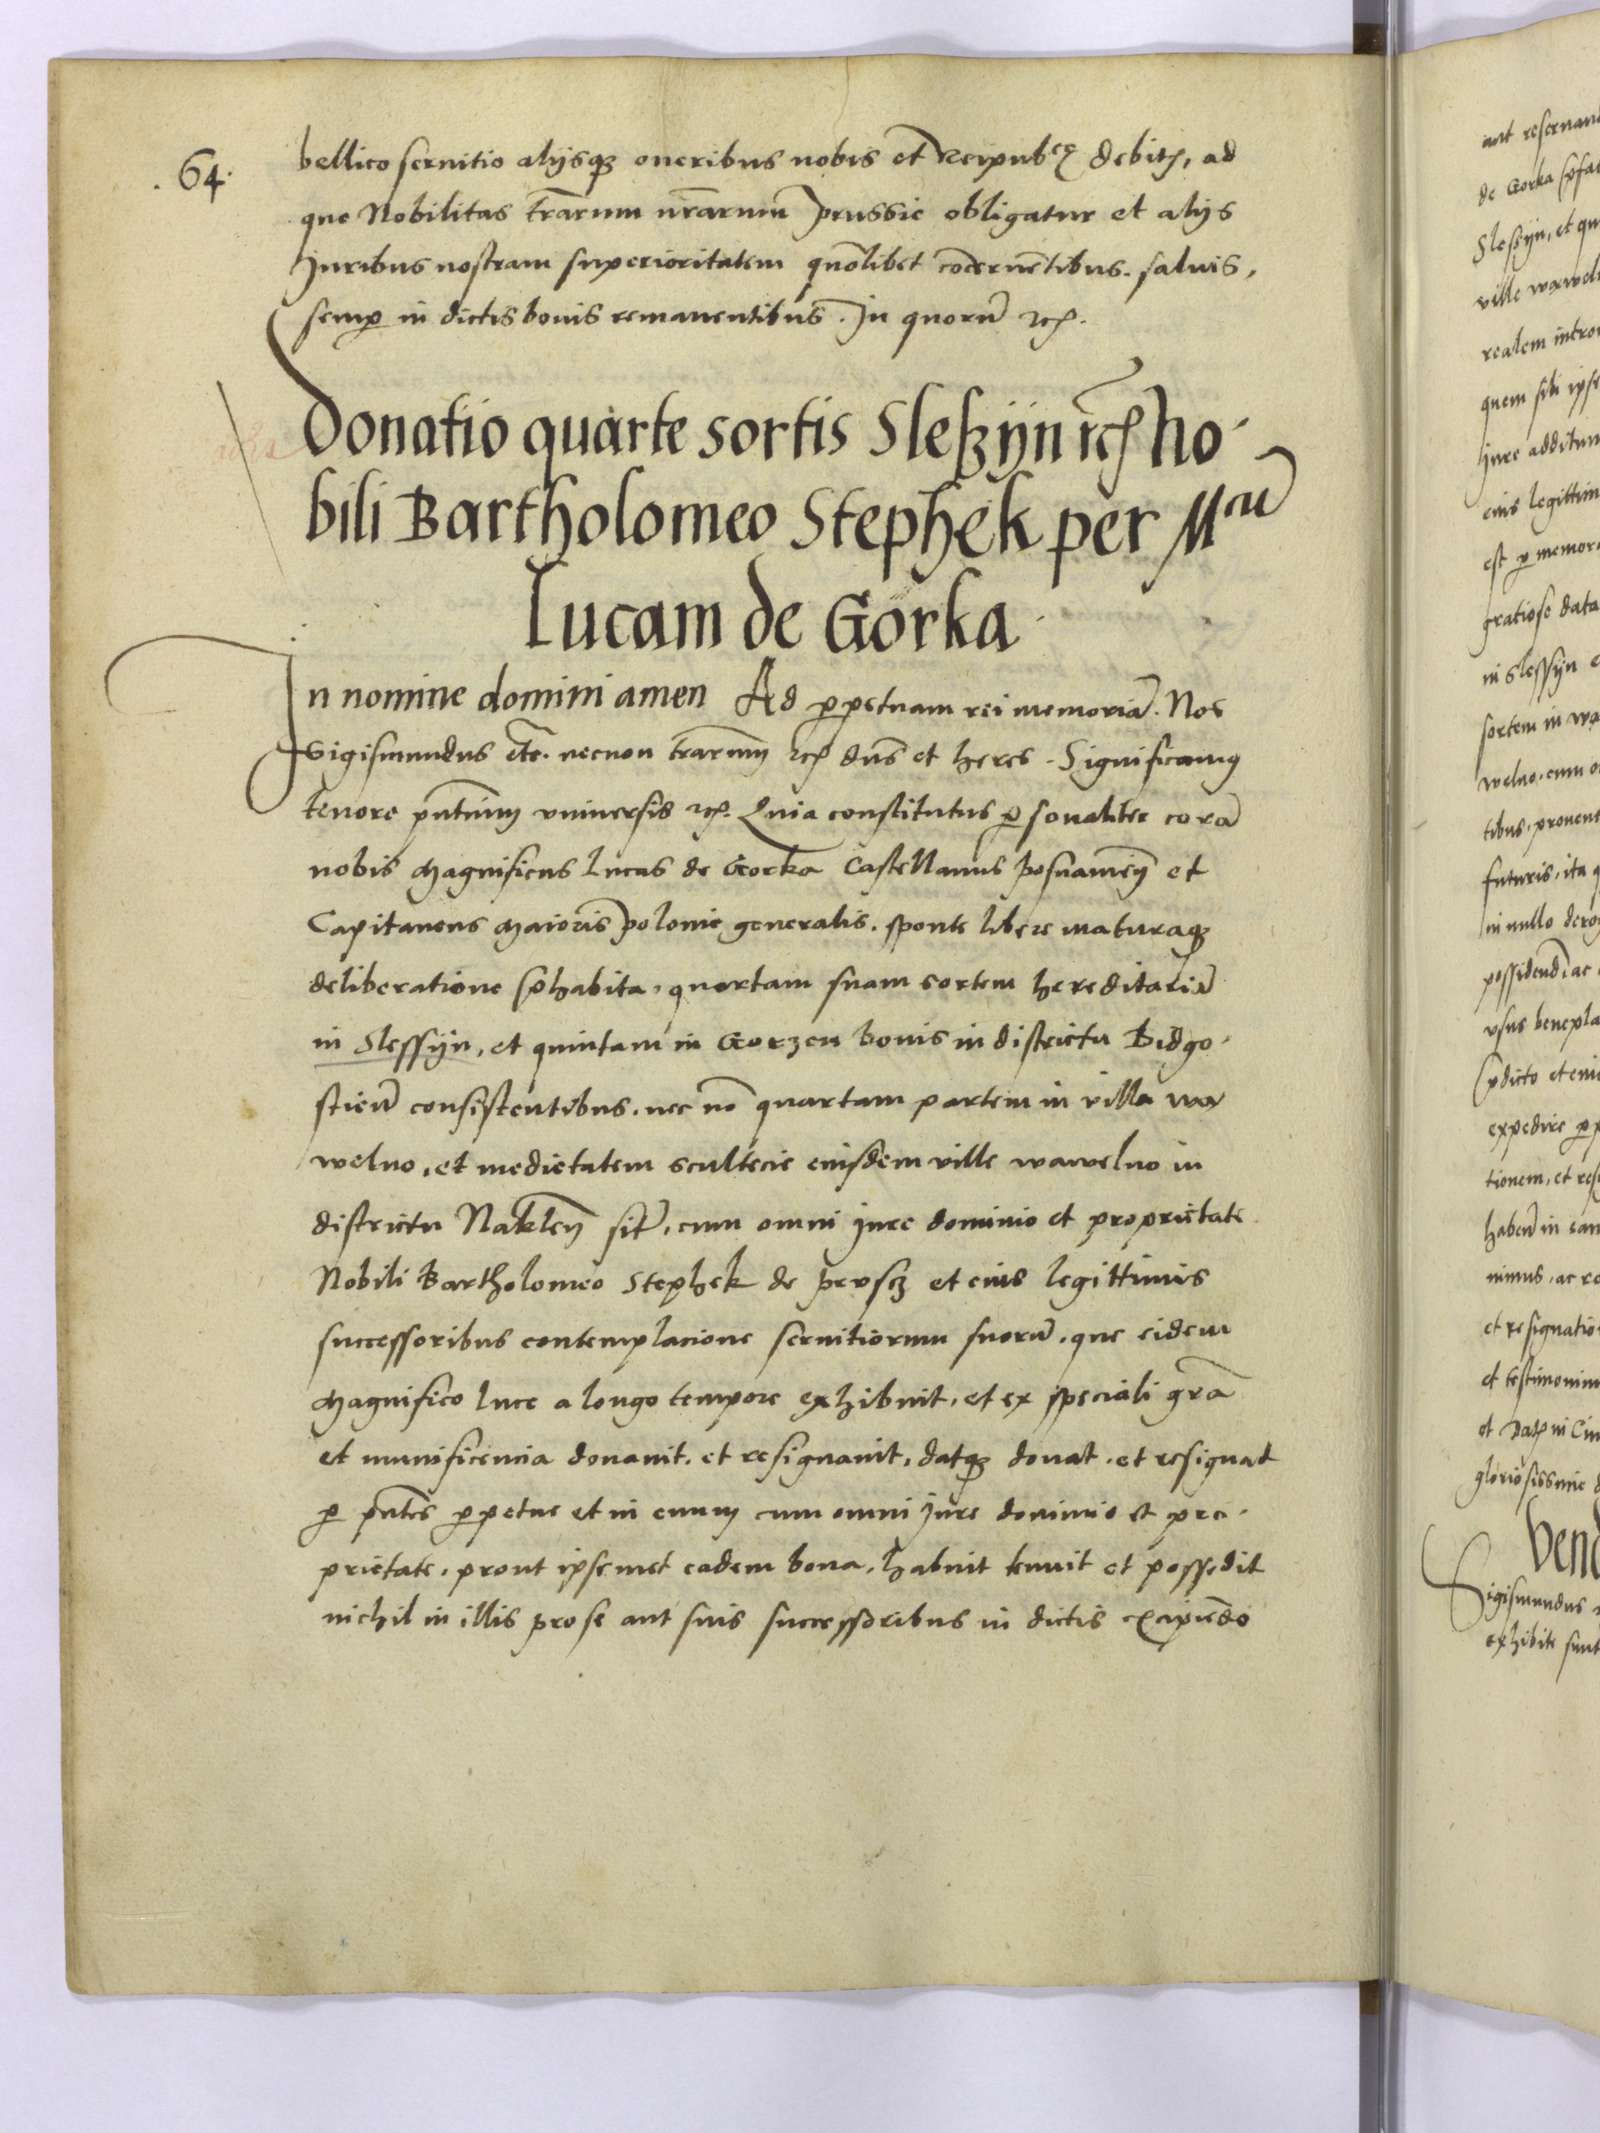 64.
bellico seruitio alijsq3 oneribus nobis et Reipubce debitis, ad
que Nobilitas trarum nrarum prussie obligatur et alijs
Juribus nostram superioritatem quolibet cocernetibus. saluis,
semp in dictis bonis remanentibus. In quoru etc.
Donatio quarte sortis Sleßijn etc No-
bili Bartholomeo Stephek per Mcu
Lucam de Gorka
In nomine domini amen Ad ppetuam rei memoria. Nos
Sigismundus etc. necnon trarum etc dns et heres. Significamus
tenore pntium vniuersis etc. Quia constitutus psonaliter cora
nobis Magnificus Lucas de Gorka Castellanus posnanien et
Capitaneus Maioris polonie generalis. sponte libere maturaq3
deliberatione phabita, quartam suam sortem hereditaria
in Slessijn, et quintam in Gorzen bonis in districtu Bidgo-
stien consistentibus. nec no quartam partem in villa wa
welno, et medietatem scultecie eiusdem ville wawelno in
districtu Naklen sit, cum omni Jure dominio et proprietate
Nobili Bartholomeo Stephek de prusc3 et eius legittimis
successoribus contemplacione seruitiorum suoru. que eidem
Magnifico Luce a longo tempore exhibuit, et ex speciali gra
et munificencia donauit. et resignauit, datq3 donat. et resignat
p pntes ppetue et in euum cum omni Jure dominio et pro-
prietate, prout ipsemet eadem bona, habuit tenuit et possedit
nichil in illis pro se aut suis successoribus in dictis excipiedo
aut reseruand
de Gorka pfat
Sleßijn, et qu
ville wawel
realem intro
quem sibi ipse
Jure additum
eius legittim
est p memor
gratiose data
in Slessijn
sortem in wa
welno. cum o
tibus, prouent
futuris, ita q
in nullo derog
possidend, ac
vsus benepla
pdicto et eius
expedire pp
tionem, et res
haben in ean
nimus, ac r
et resignatio
et testimonium
et Dat in Ciu
gloriosissime
Vend
Sigismundus
exhibite sunt